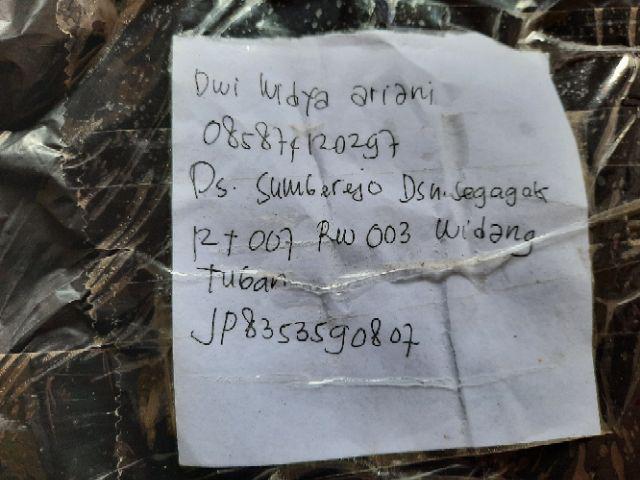 Dwi Widya ariani
085874120297
Ds. Sumberejo Dsn. Segagak
RT 007 RW 003 Widang
Tuban
JP8353590807